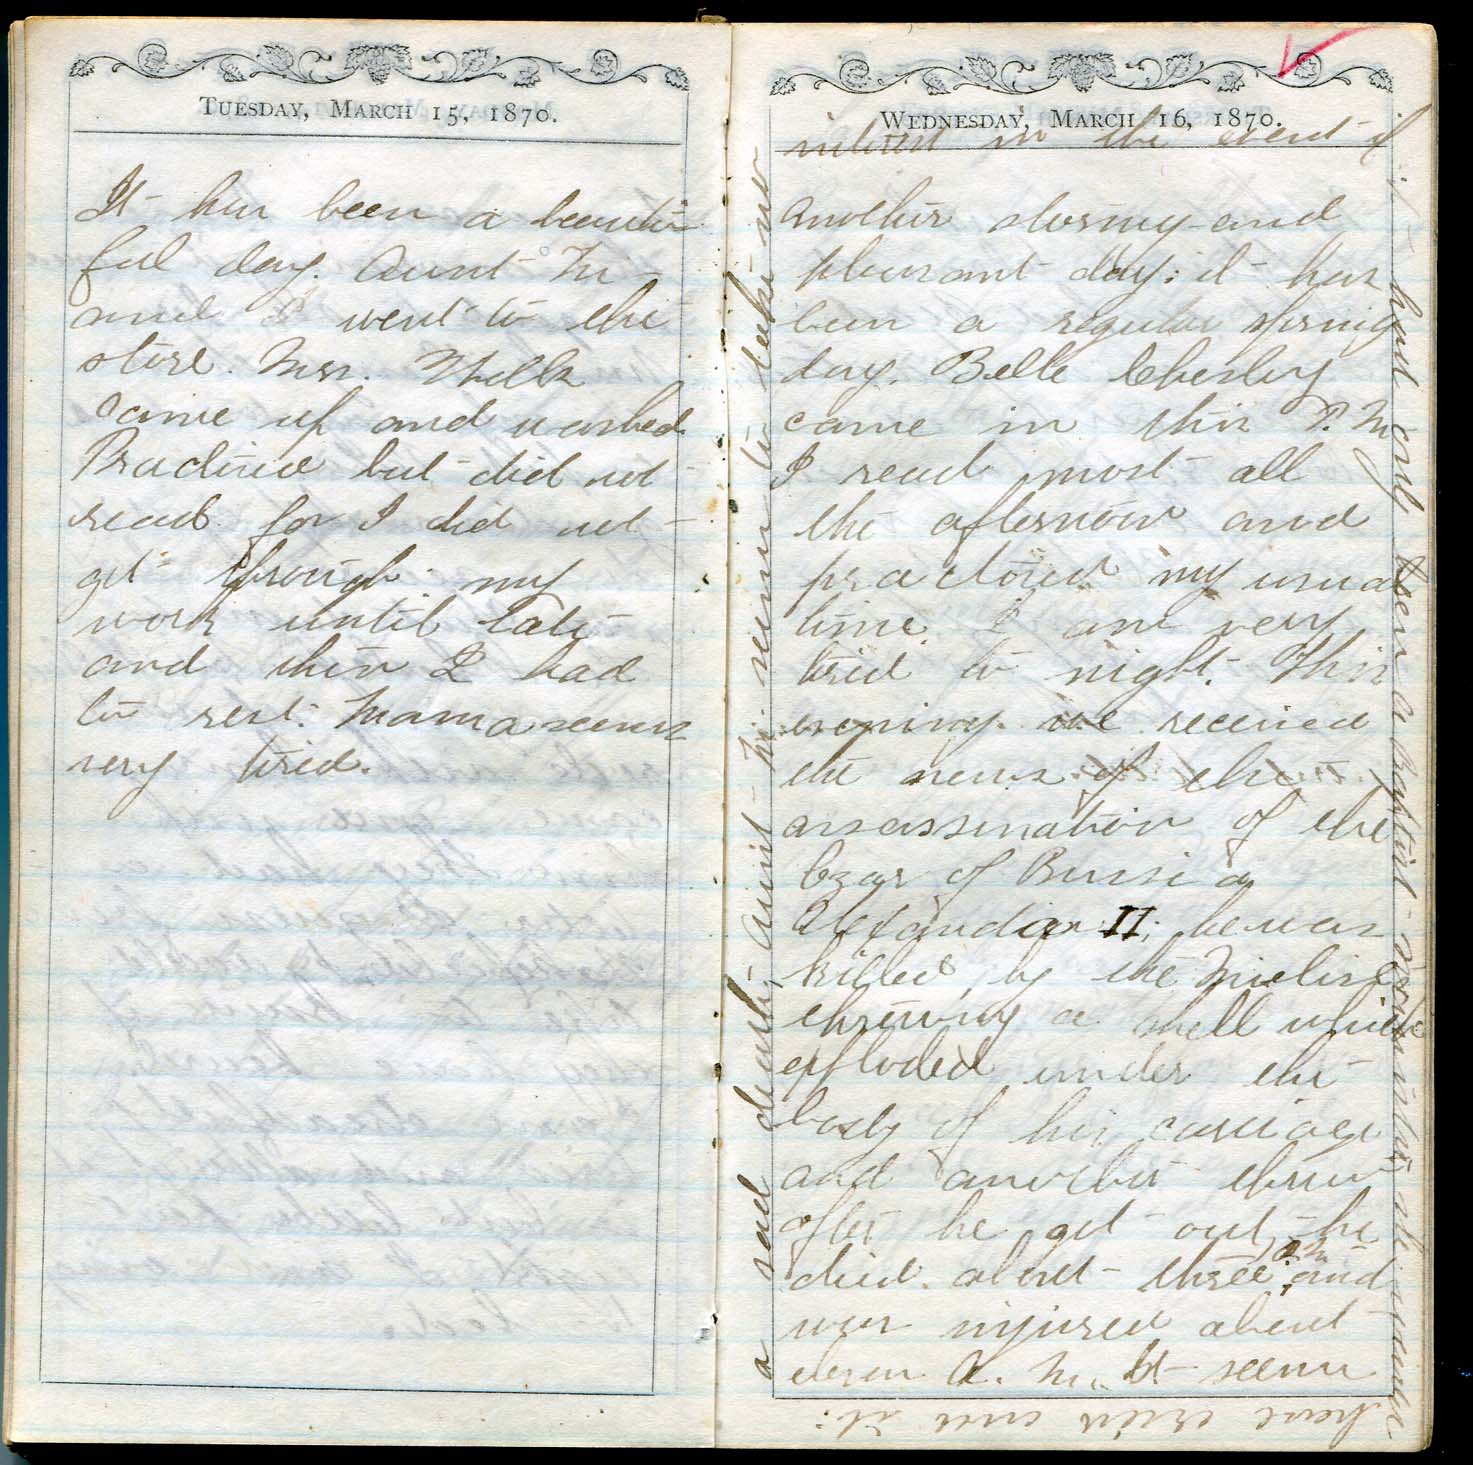 TUESDAY, MARCH 15, 1870.
It has been a beauti-
ful day. Aunt Tri
and I went to the
store. Mrs. Wells
came up and washed.
Practised but did not
read for I did not
get through my
work until late
and then I had
to rest. Mama seems
very tired.
WEDNESDAY, MARCH 16, 1870.
Another stormy and
pleasant day; it has
been a regular spring
day. Belle Chesley
came in this P.M.
I read most all
the afternoon and
practised my usual
time. I am very
tired to night. This
evening we received
the news of the
assassination of the
Czar of Russia
Alexander II; he was
killed by the
throwing a shell which
exploded under the
body of his carriage
and another thrown
after he got out, he
died about three, P.M. and
was injured about
eleven A. M. It seems
a sad death, aunt Tri seems to take no
interest in the event if
it had only been a Baptist minister she would
have cried over it.